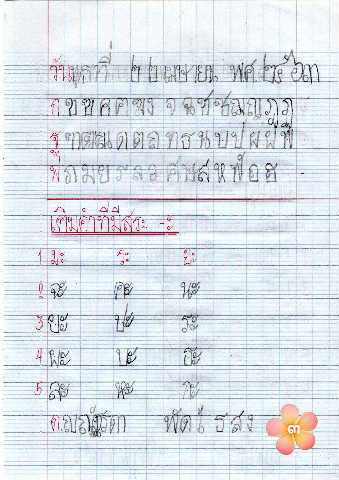 วันพุธที่ ๒๒ เมษายน พศ ๒๕๖๓
ก ข ฃ ค ฅ ฆ ง จ ฉ ช ซ ฌ ญ ฎ ฏ
ฐ ฑ ฒ ณ ด ต ถ ท ธ น บ ป ผ ฝ พ
ฟ ภ ม ย ร ล ว ศ ษ ส ห ฬ อ ฮ
เติมคำที่มีสระ -ะ
1 มะ ระ ยะ
2 จะ คะ นะ
3 ยะ ปะ ระ
4 ผะ บะ
5 ละ หะ กะ
๓